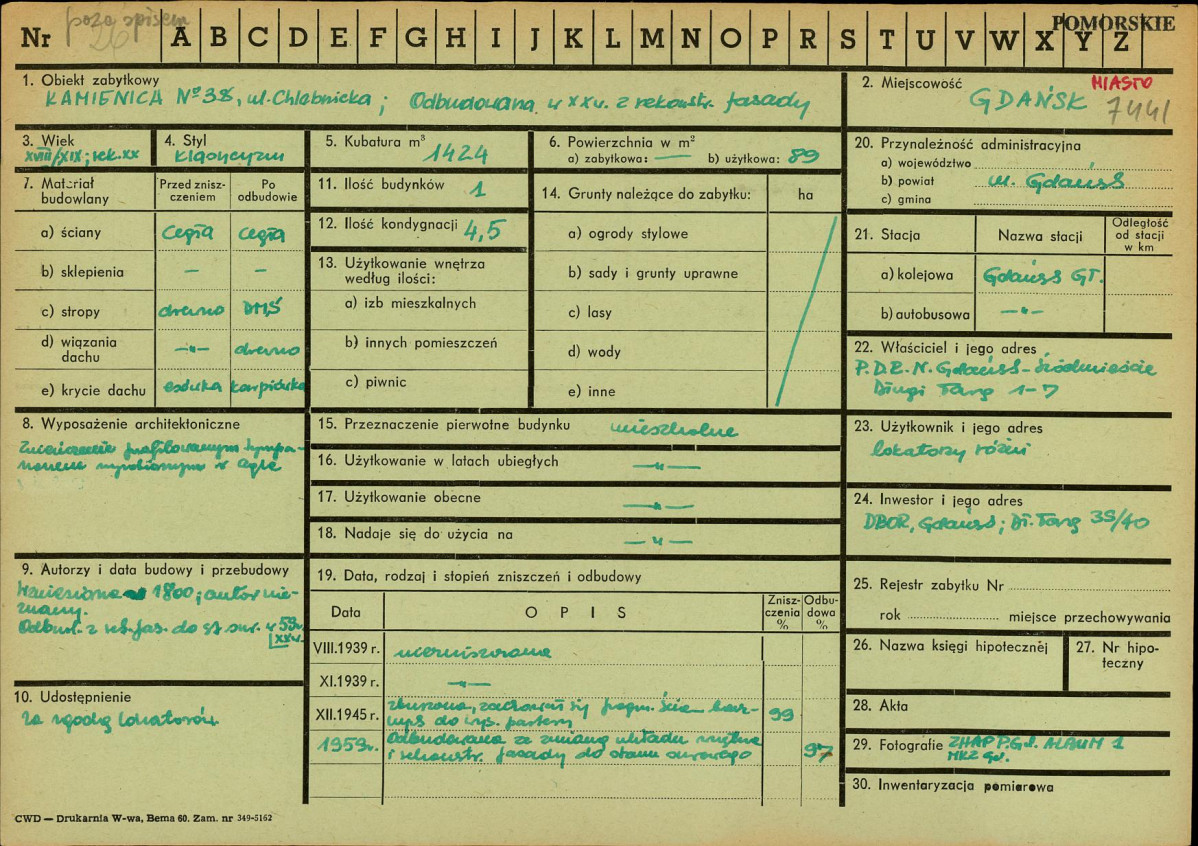 poza spisem
26
POMORSKIE
Nr A B C D E F G H I J K L M N O P R S T U V W X Y Z
1. Obiekt zabytkowy
KAMIENICA Nº 38, ul. Chlebnicka; Odbudowana w XX w. z rekonstr. fasady
2. Miejscowość MIASTO
GDAŃSK 7441
3. Wiek
XVIII/XIX; rek. XX
4. Styl
Klasycyzm
5. Kubatura m³
1424
6. Powierzchnia w m²
a) zabytkowa: — b) użytkowa: 89
20. Przynależność administracyjna
a) województwo
b) powiat m. Gdańsk
c) gmina
7. Materiał budowlany
Przed zniszczeniem
Po odbudowie
a) ściany cegła cegła
b) sklepienia – –
c) stropy drewno DMS
d) wiązania dachu —„— drewno
e) krycie dachu esówka karpiówka
11. Ilość budynków 1
12. Ilość kondygnacji 4,5
13. Użytkowanie wnętrza
według ilości:
a) izb mieszkalnych
b) innych pomieszczeń
c) piwnic
14. Grunty należące do zabytku: ha
a) ogrody stylowe
b) sady i grunty uprawne
c) lasy
d) wody
e) inne
21. Stacja Nazwa stacji Odległość od stacji w km
a) kolejowa Gdańsk Gł.
b) autobusowa —„—
22. Właściciel i jego adres
P.D.R.N. Gdańsk-Śródmieście
Długi Targ 1-7
8. Wyposażenie architektoniczne
Zwieńczenie profilowanym tympa-
nonem wyrobionym w cegle
15. Przeznaczenie pierwotne budynku mieszkalne
16. Użytkowanie w latach ubiegłych —„—
17. Użytkowanie obecne —„—
18. Nadaje się do użycia na —„—
23. Użytkownik i jego adres
lokatorzy różni
24. Inwestor i jego adres
DBOR, Gdańsk; Dł. Targ 39/40
9. Autorzy i data budowy i przebudowy
Wzniesiona 1800; autor nie-
znany.
Odbud. z rek. fas. do st. sur. w 59 r.
XX w.
10. Udostępnienie
Za zgodą lokatorów
19. Data, rodzaj i stopień zniszczeń i odbudowy
Data OPIS Zniszczenia % Odbudowa %
VIII.1939 r. niezniszczona
XI.1939 r. —„—
XII.1945 r. zburzona, zachował się fragm. ścian
do wys. parteru 99
1959 r. Odbudowana ze zmianą układu wnętrza
i rekonstr. fasady do stanu surowego 97
25. Rejestr zabytku Nr
rok miejsce przechowywania
26. Nazwa księgi hipotecznej
27. Nr hipoteczny
28. Akta
29. Fotografie ZHAP P.Gd. ALBUM 1
MKZ Gd.
30. Inwentaryzacja pomiarowa
CWD — Drukarnia W-wa, Bema 60. Zam. nr 349-5162